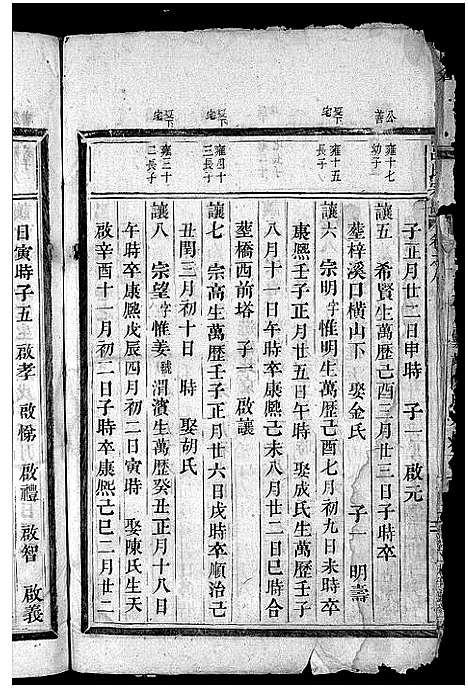 公善
雍十七
幼子
墅下宅
雍十五
長子
墅下
雍四十
三長子
墅下宅
雍三十
二長子
子正月廿二日申時 子一 啟元
讓五 希賢生萬歷己酉三月廿三日子時卒
塟梓溪口橫山下 娶金氏 子一 明壽
讓六 宗明字惟明生萬歷己酉七月初九日未時卒
康熈壬子正月廿五日午時 娶成氏生萬歷壬子
八月十一日午時卒康熈己未八月廿二日巳時合
塟橋西前塔 子一 啟讓
讓七 宗高生萬歷壬子正月廿六日戌時卒順治己
丑閏三月初十日 時 娶胡氏
讓八 宗望字惟姜號渭濱生萬歷癸丑正月十八日
午時卒康熈戊辰四月初二日寅時 娶陳氏生天
啟辛酉十一月初二日子時卒康熈己巳二月廿二
日寅時子五 啟孝 啟悌 啟禮 啟智 啟義